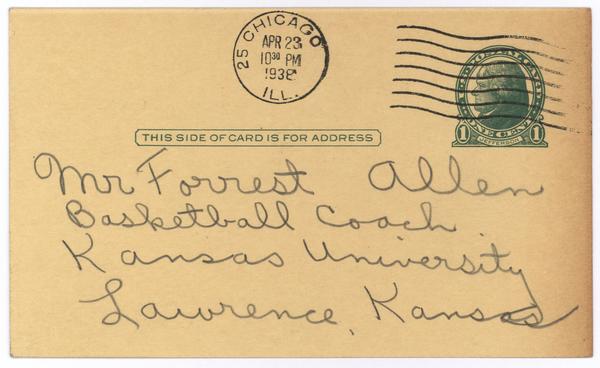 25 CHICAGO
APR 23
10 30 PM
1938
ILL.
1 ONE CENT 1
JEFFERSON
THIS SIDE OF CARD IS FOR ADDRESS
Mr Forrest Allen
Basketball Coach
Kansas University
Lawrence, Kansas